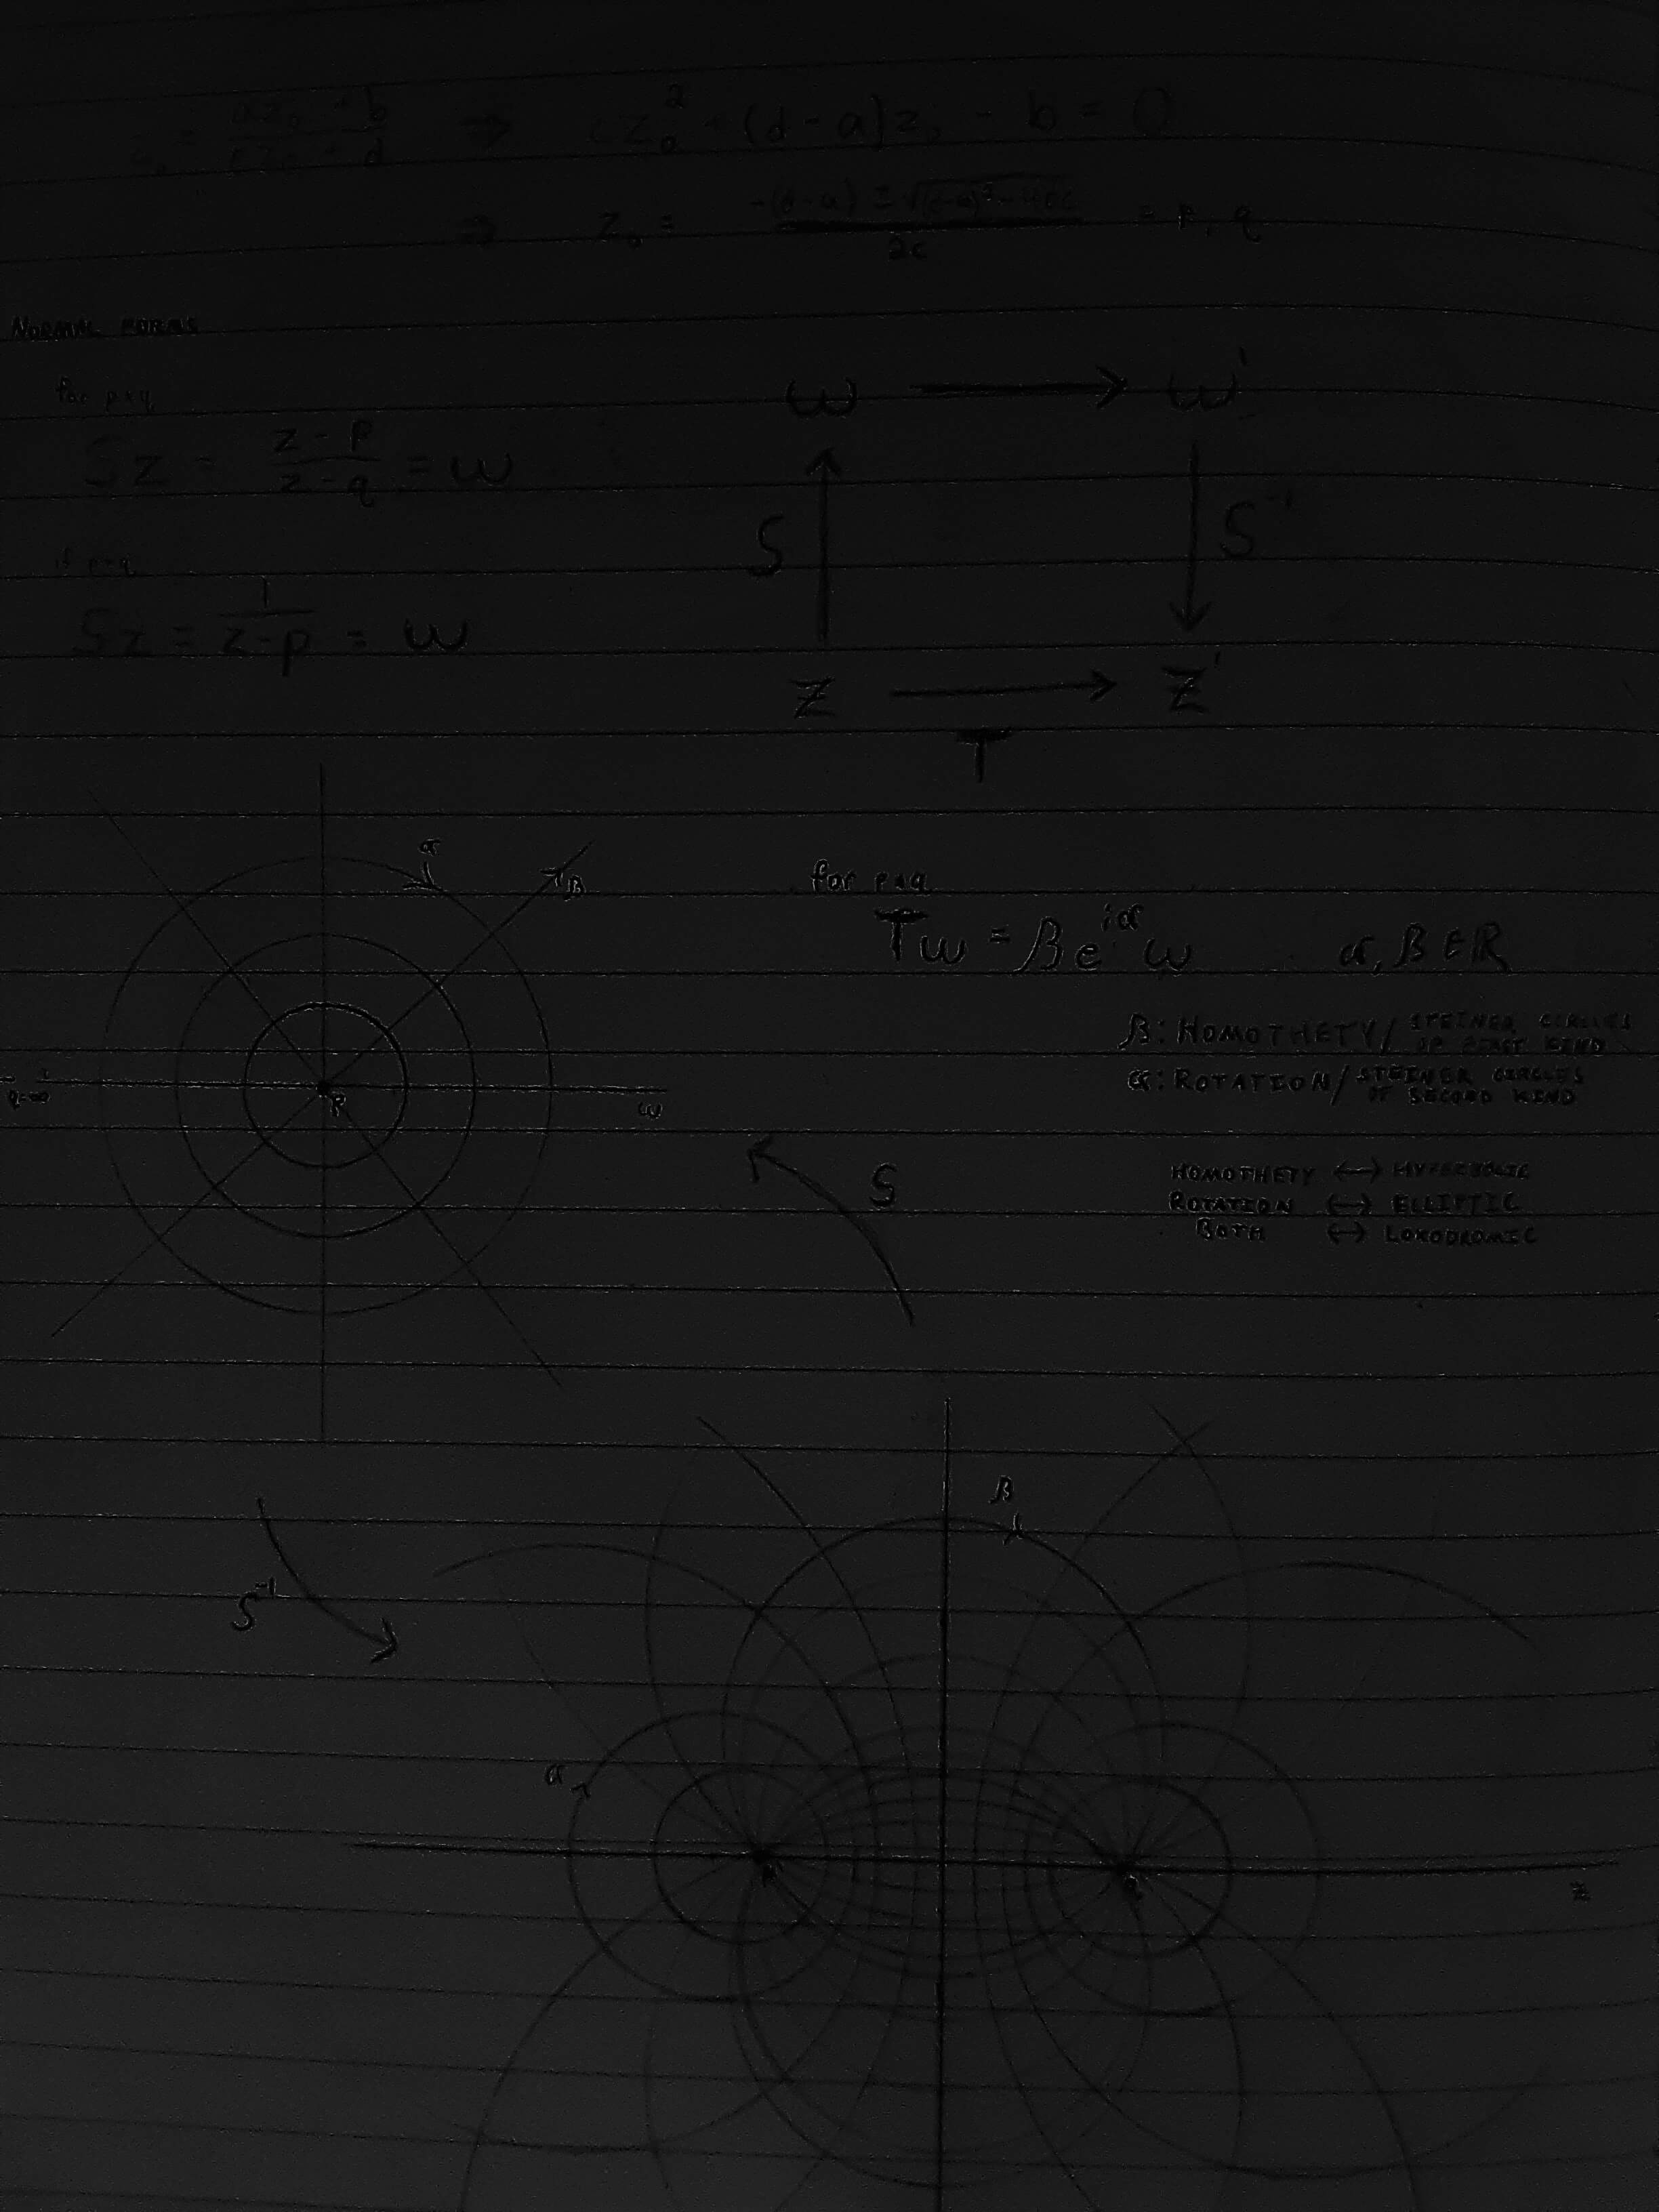 z₀ = (az₀ + b)/(cz₀ + d) ⇒ cz₀² + (d - a)z₀ - b = 0
⇒ z₀ = (-(d-a) ± √((d-a)² + 4bc))/2c = p, q
NORMAL FORMS
for p≠q
Sz = (z - p)/(z - q) = ω
if p=q
Sz = 1/(z-p) = ω
ω → ω'
S S⁻¹
z → z'
T
α
β
p
q=∞
ω
for p≠q
Tω = βe^{iα}ω α, β ∈ ℝ
β: HOMOTHETY / STEINER CIRCLES OF FIRST KIND
α: ROTATION / STEINER CIRCLES OF SECOND KIND
HOMOTHETY ↔ HYPERBOLIC
ROTATION ↔ ELLIPTIC
BOTH ↔ LOXODROMIC
S
S⁻¹
β
α
p
q
z